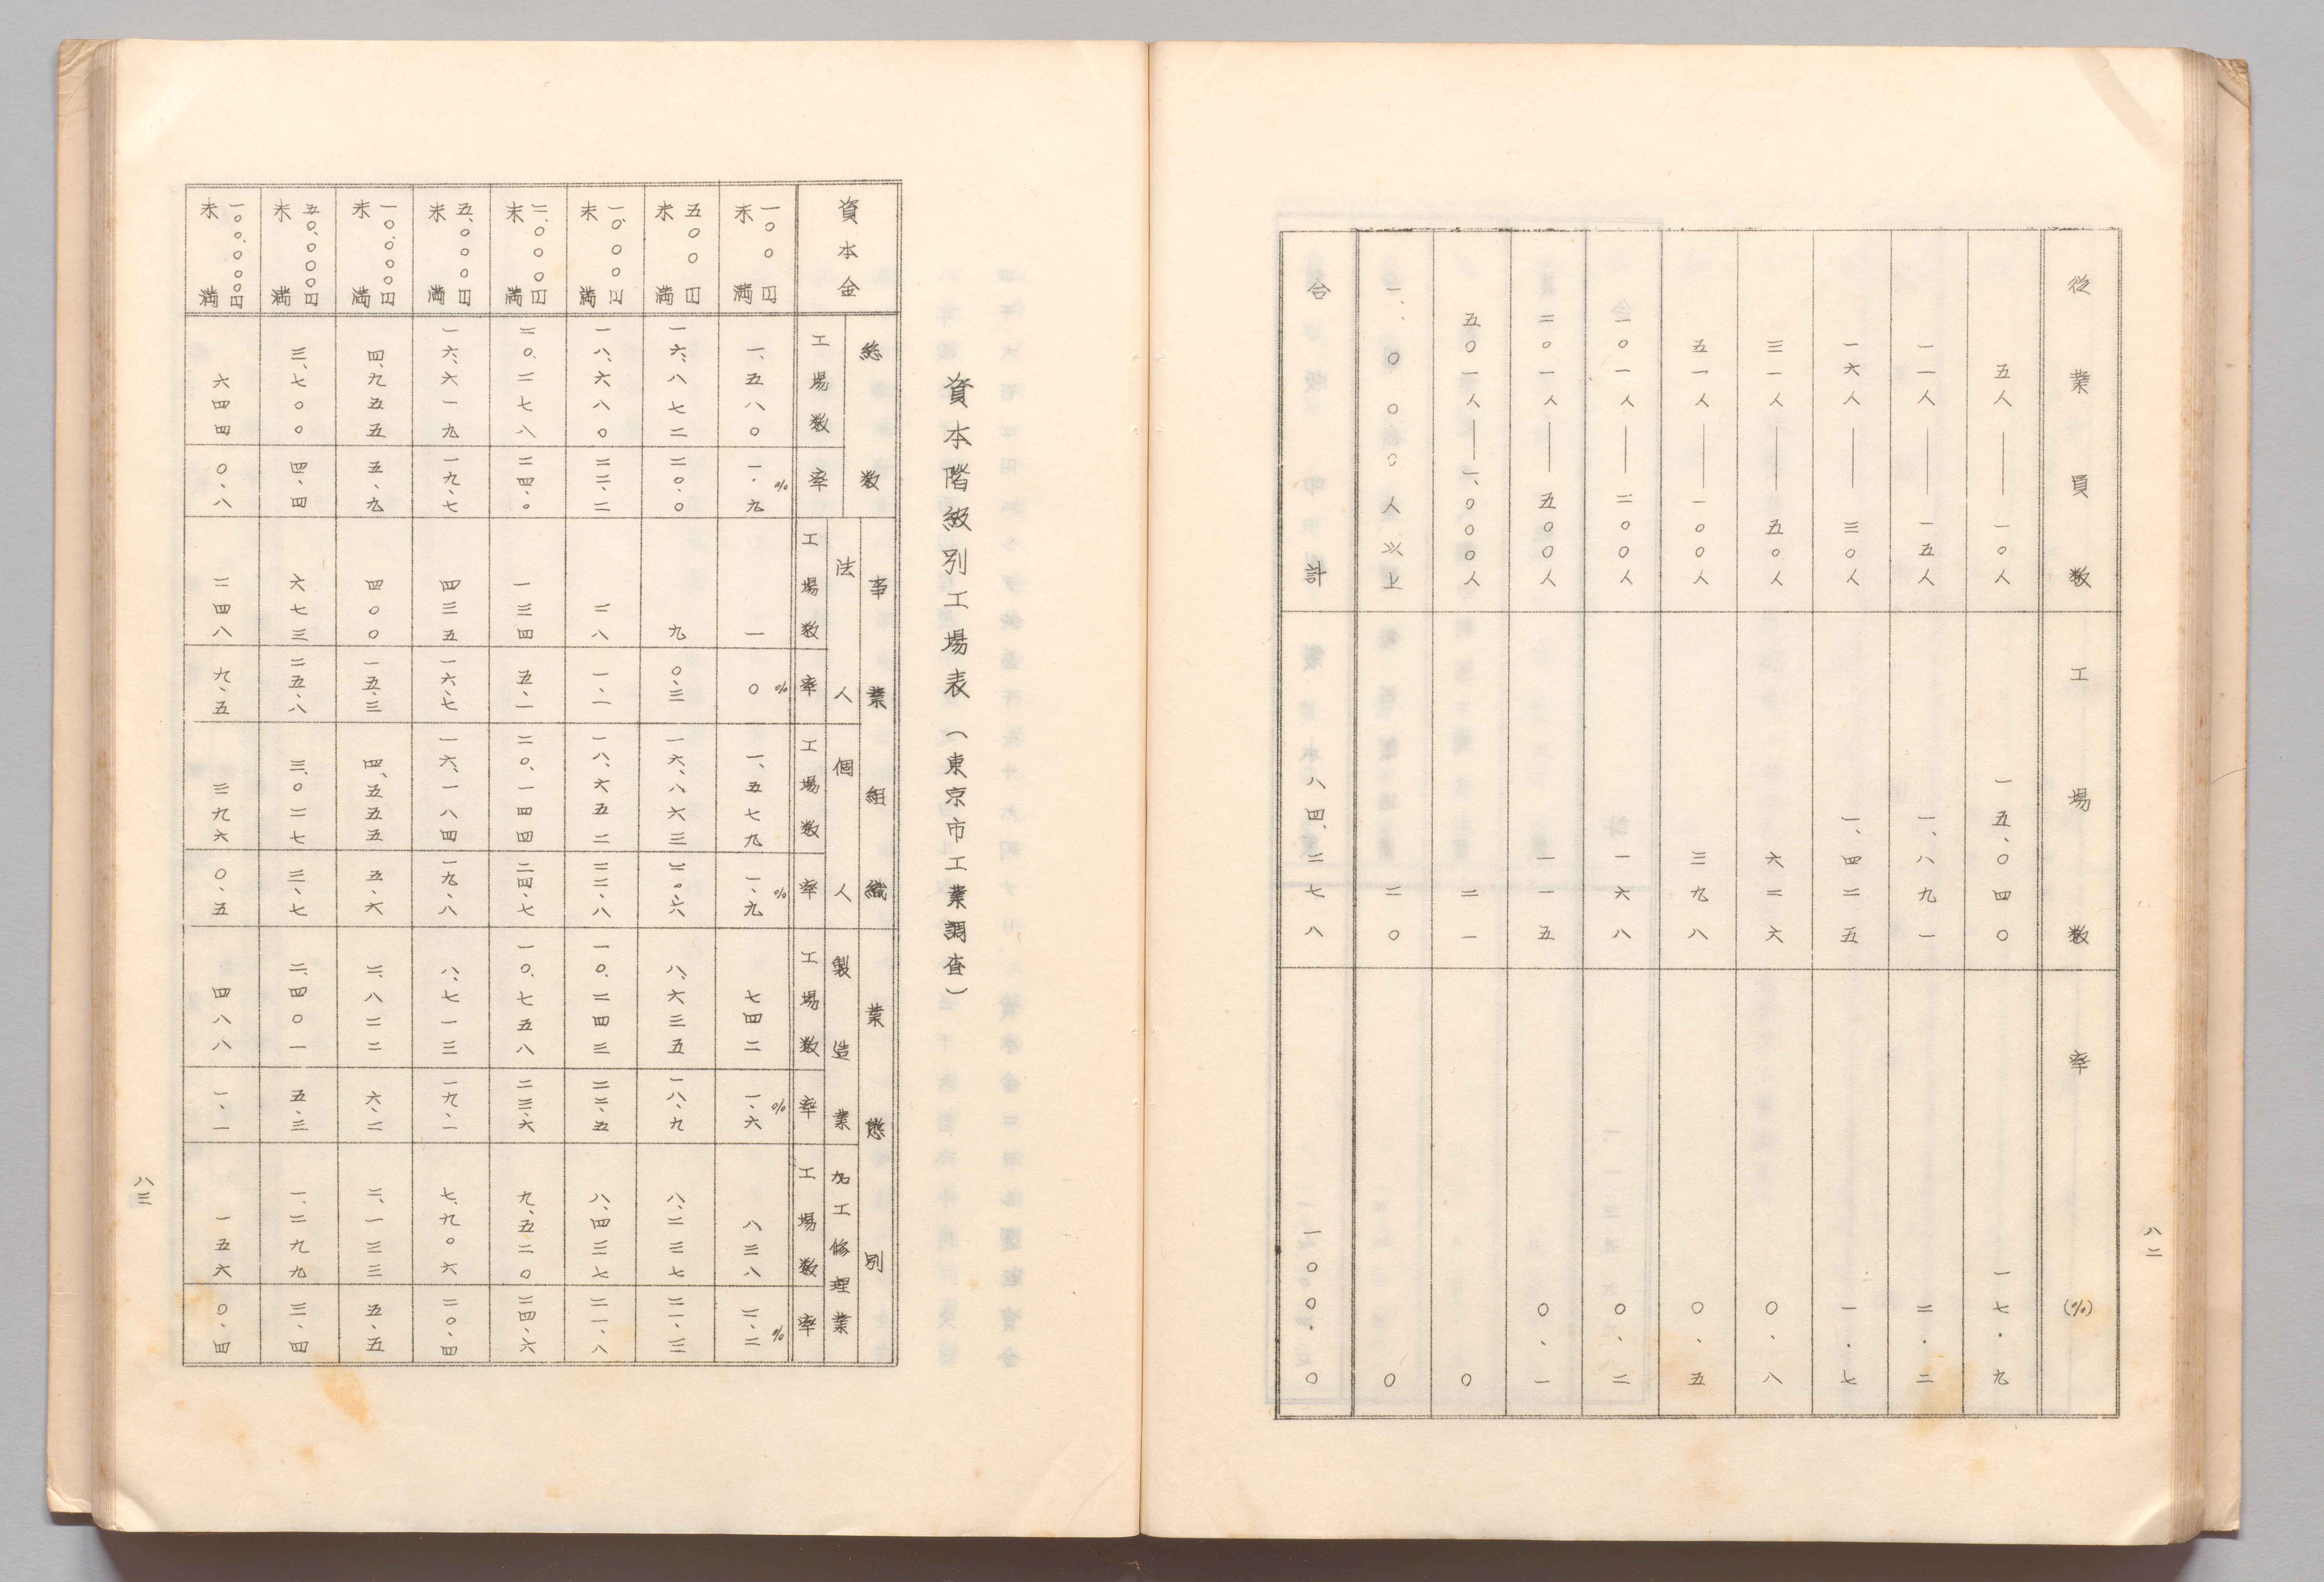 八二
従業員数 工場数 率(%)
五人——一〇人 一五、〇四〇 一七・九
一一人——一五人 一、八九一 二・二
一六人——三〇人 一、四二五 一・七
三一人——五〇人 六二六 〇、八
五一人——一〇〇人 三九八 〇、五
一〇一人——二〇〇人 一六八 〇、二
二〇一人——五〇〇人 一一五 〇、一
五〇一人——一、〇〇〇人 二一 〇
一、〇〇〇人以上 二〇 〇
合計 八四、二七八 一〇〇・〇
資本階級別工場表(東京市工業調査)
資本金 総数 事業組織 業態別
法人 個人 製造業 加工修理業
工場数 率 工場数 率 工場数 率 工場数 率 工場数 率
一〇〇円未満 一、五八〇 一・九% 一 〇% 一、五七九 一、九% 七四二 一、六% 八三八 二、二%
五〇〇円未満 一六、八七二 二〇、〇 九 〇、三 一六、八六三 二〇、六 八、六三五 一八、九 八、二三七 二一、三
一、〇〇〇円未満 一八、六八〇 二二、二 二八 一、一 一八、六五二 二二、八 一〇、二四三 二二、五 八、四三七 二一、八
二、〇〇〇円未満 二〇、二七八 二四、〇 一三四 五、一 二〇、一四四 二四、七 一〇、七五八 二三、六 九、五二〇 二四、六
五、〇〇〇円未満 一六、六一九 一九、七 四三五 一六、七 一六、一八四 一九、八 八、七一三 一九、一 七、九〇六 二〇、四
一〇、〇〇〇円未満 四、九五五 五、九 四〇〇 一五、三 四、五五五 五、六 二、八二二 六、二 二、一三三 五、五
五〇、〇〇〇円未満 三、七〇〇 四、四 六七三 二五、八 三、〇二七 三、七 二、四〇一 五、三 一、二九九 三、四
一〇〇、〇〇〇円未満 六四四 〇、八 二四八 九、五 三九六 〇、五 四八八 一、一 一五六 〇、四
八三